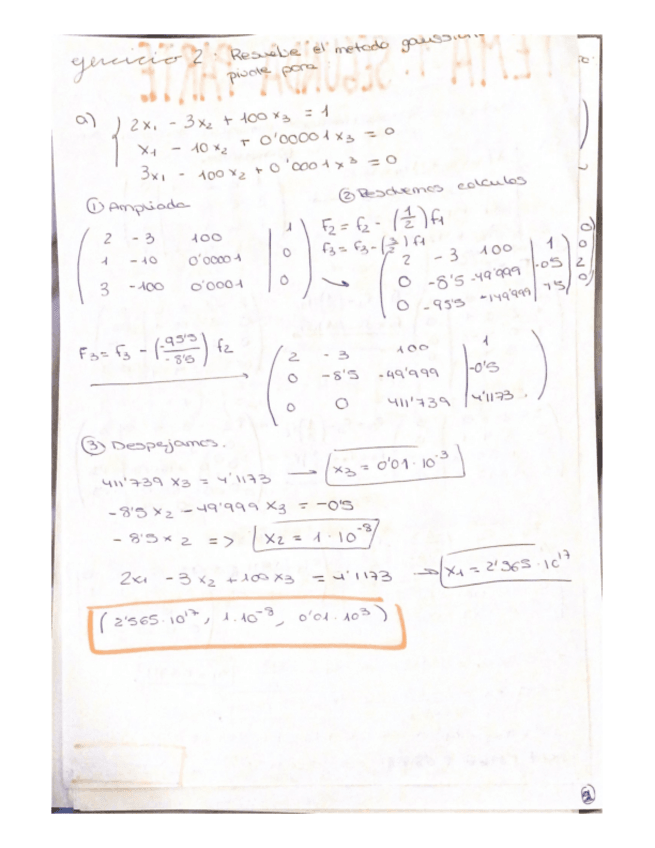 ejercicio 2. Resuelve el metodo gaussiano
pivote para
a) { 2x₁ - 3x₂ + 100x₃ = 1
x₁ - 10x₂ + 0'00001x₃ = 0
3x₁ - 100x₂ + 0'0001x₃ = 0
① Ampliada
( 2 -3 100 | 1
1 -10 0'00001 | 0
3 -100 0'0001 | 0 )
② calculos
F₂ = f₂ - (1/2) f₁
F₃ = f₃ - (3/2) f₁
( 2 -3 100 | 1
0 -8'5 -49'999 | -0'5
0 -95'5 -149'999 | -1'5 )
F₃ = f₃ - (-95'5/-8'5) f₂
( 2 -3 100 | 1
0 -8'5 -49'999 | -0'5
0 0 411'739 | 4'1173 )
③ Despejamos.
411'739 x₃ = 4'1173 → x₃ = 0'01·10⁻³
-8'5 x₂ - 49'999 x₃ = -0'5
-8'5 x 2 => x₂ = 1·10⁻⁸
2x₁ - 3x₂ + 100x₃ = 4'1173 → x₁ = 2'565·10¹⁷
(2'565·10¹⁷, 1·10⁻⁸, 0'01·10³)